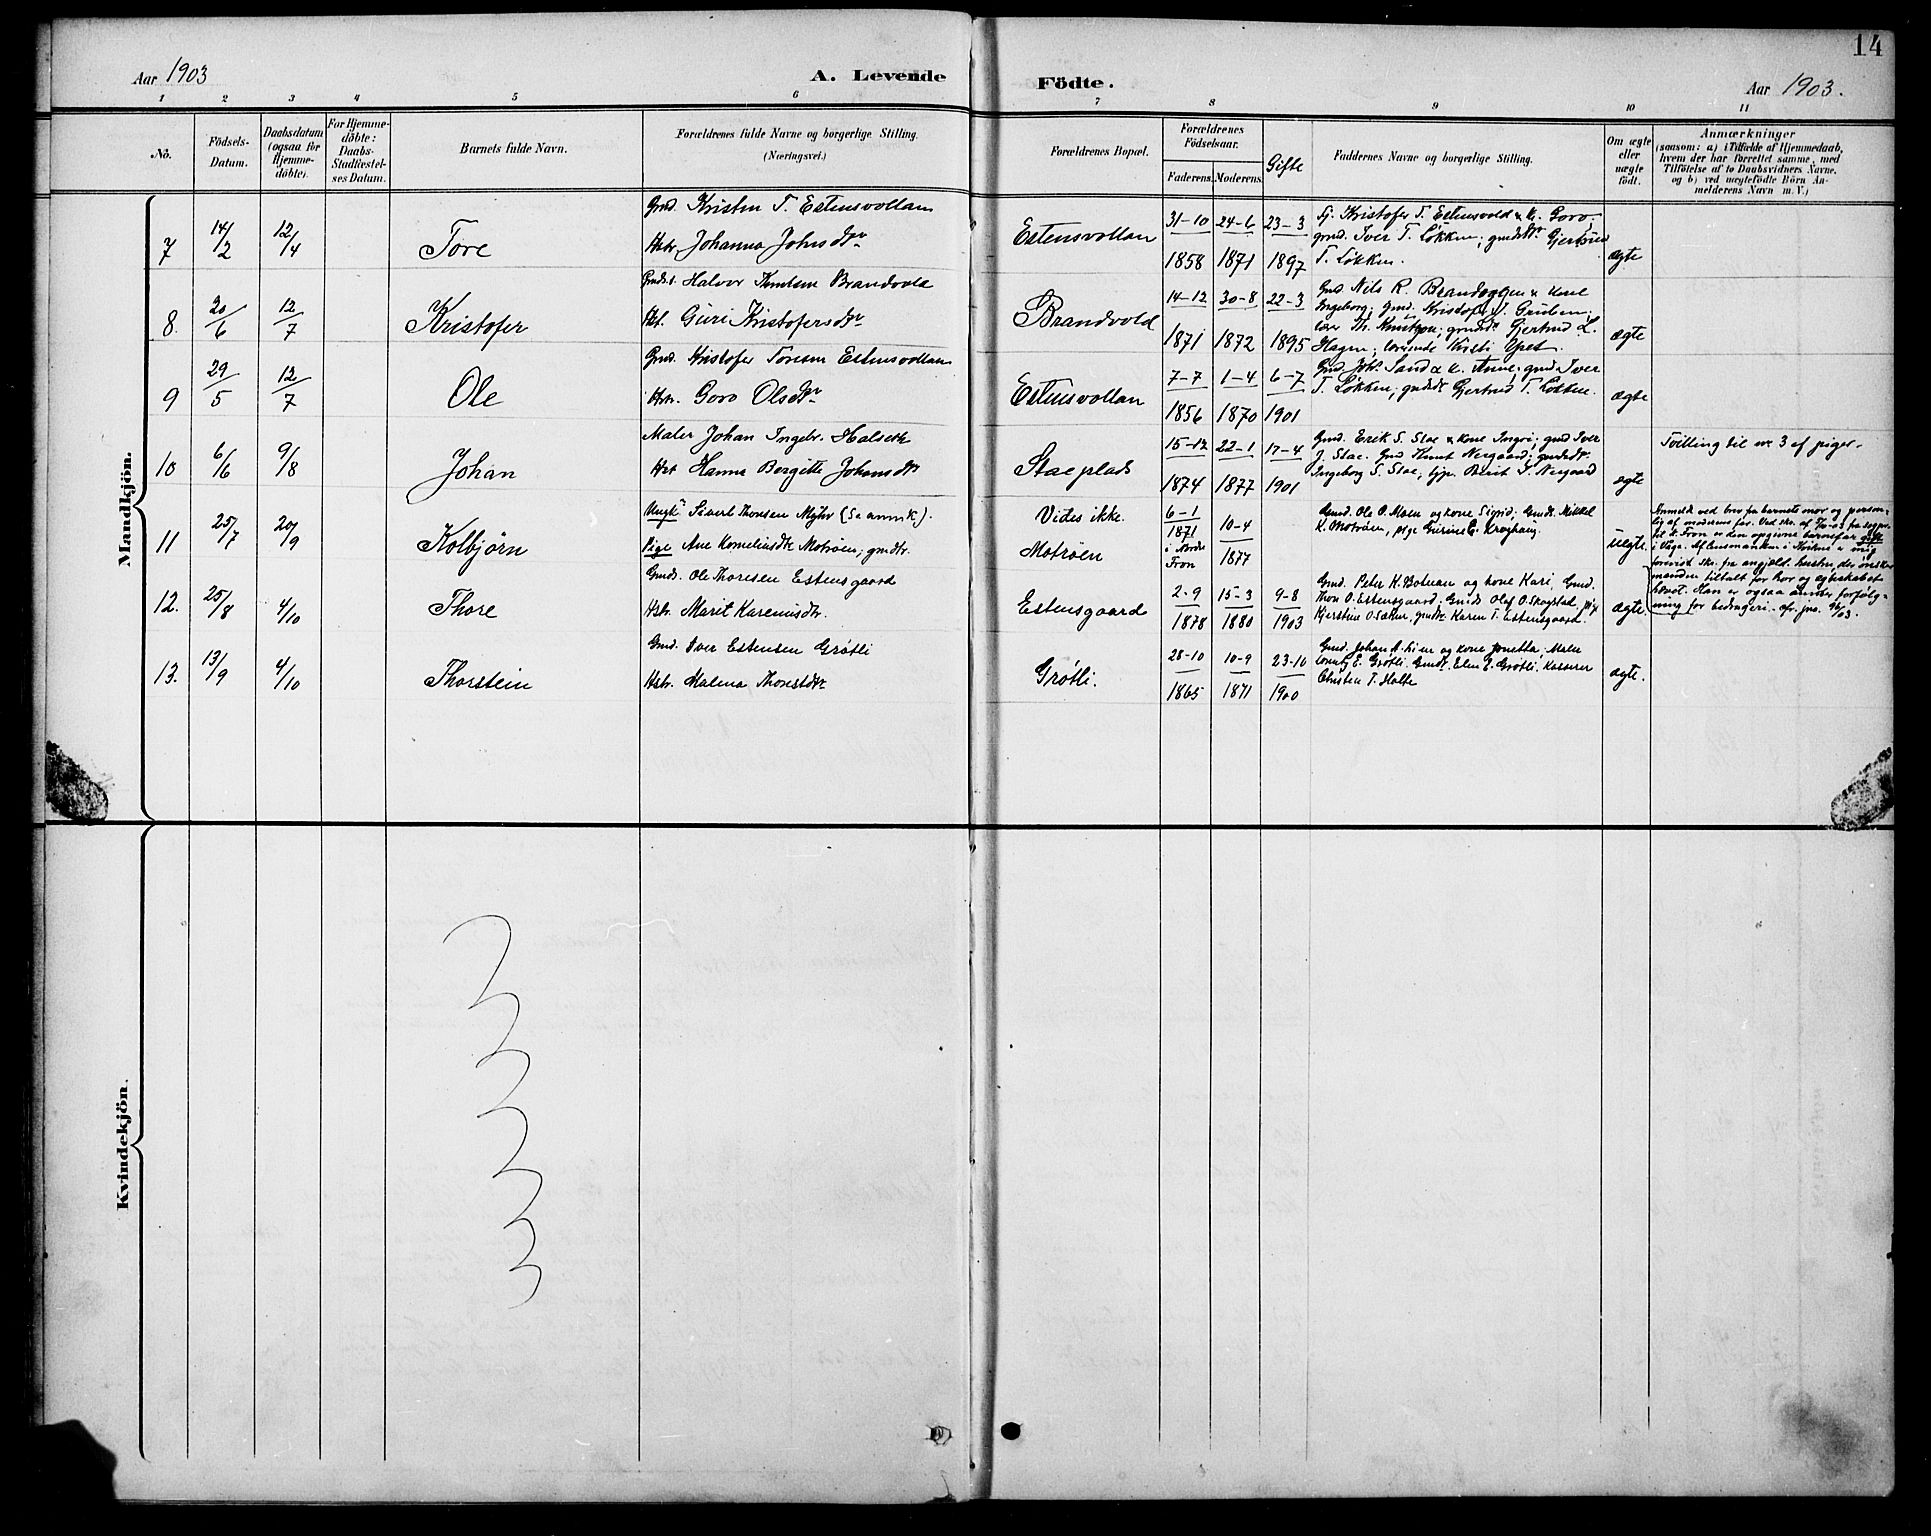 14
Aar 1903
A. Levende
Födte.
Aar 1903.
1 2 3 4 5 6 7 8 9 10 11
No.
Födsels-
Datum.
Daabsdatum
(ogsaa for
Hjemme-
döbte).
For Hjemme-
döbte:
Daabs-
Stadfæstel-
ses Datum.
Barnets fulde Navn.
Forældrenes fulde Navne og borgerlige Stilling.
(Næringsvei.)
Forældrenes Bopæl.
Forældrenes
Födselsaar.
Faderens.
Moderens.
Gifte
Faddernes Navne og borgerlige Stilling.
Om ægte
eller
uægte
födt.
Anmærkninger
(saasom: a) i Tilfælde af Hjemmedaab,
hvem der har forrettet samme, med
Tilföielse af to Daabsvidners Navne,
og b) ved uægtefödte Börn An-
melderens Navn m. V.)
Mandkjön.
7 14/2 12/4 Tore
Gmd. Kristen T. Estensvollan
Hstr. Johanna Johnsdtr
Estensvollan
31-10 24-6 23-3
1858 1871 1897
Fj. Kristofer T. Estensvold & k. Goro,
gmd. Iver T. Løkken; gmdsdtr Gjertrud
T. Løkken.
ægte
8. 20/6 12/7 Kristofer
Gmds. Halvor Knutsen Brandvold
Hst. Guri Kristofersdtr
Brandvold
14-12 30-8 22-3
1871 1872 1895
Gmd Nils R. Brandeggen & kone
Ingeborg; gmd. Kristofer J. Gruben;
Th. Knutzon; gmdsdtr Gjertrud L.
Hagen, Kristi
ægte
9 29/5 12/7 Ole
Gmd. Kristofer Toresen Estensvollan
Hstr. Goro Olsdtr
Estensvollan
7-7 1-4 6-7
1856 1870 1901
Gmd Johs. Sand & k. Anne; gmd Iver
T. Løkken; gmdsdtr Gjertrud T. Løkken.
ægte
10 6/6 9/8 Johan
Maler Johan Ingebr. Halseth
Hst Hanna Bergitte Johansdtr
Stae plads
15-12 22-1 17-4
1874 1877 1901
Gmd. Erik S. Stae & kone Ingri; gmd Iver
J. Stae. Gmd Knut Nergaard; gmdsdtr.
Ingeborg S. Stae, tjp. Berit J. Nergaard
ægte
Tvilling til nr 3 af piger.
11 25/7 20/9 Kolbjörn
Ungk. Sivert Thoresen Myhr (Se anmk).
Pige Ane Korneliusdtr Motrøen; gmdtr.
Vides ikke.
Motrøen
6-1
1871
i Nordre
Fron
10-4
1877
Gmd. Ole O. Moen og kone Sigrid; Gmds. Mikkel
K. Motrøen, pige Gurine E. Kroghaug.
uægte.
Anmeldt ved brev fra barnets mor og person-
lig af moderens far. Ved skr. af fra sogne-
til N. Fron er den opgivne barnefar gift
i Vaage. Af lensmanden i er mig
forevist skr. fra angjæld. hustru, der ønsker
manden tiltalt for hor og ægteskabet
hævet. Han er ogsaa under forfølg-
ning for bedrageri. cfr. jno. 96/03.
12. 25/8 4/10 Thore
Gmds. Ole Thoresen Estensgaard
Hstr. Marit Kareniusdtr.
Estensgaard
2-9 15-3 9-8
1878 1880 1903
Gmd. Peter K. Botnan og kone Kari, Gmd.
Thore O. Estensgaard, Gmds Olaf O. Skogstad, pige
Kjerstine O. Sæther, gmdtr. Karen T. Estensgaard.
ægte.
13. 13/9 4/10 Thorstein
Gmd. Iver Estensen Grøtli
Hstr. Malena Thorestdtr
Grøtli.
28-10 10-9 23-10
1865 1871 1900
Gmd. Johan A. Lien og kone Jonetta; Maler
Lorents E. Grøtli. Gmdt. Elen E. Grøtli. Kasserer
Christen T. Holte
ægte.
Kvindekjön.